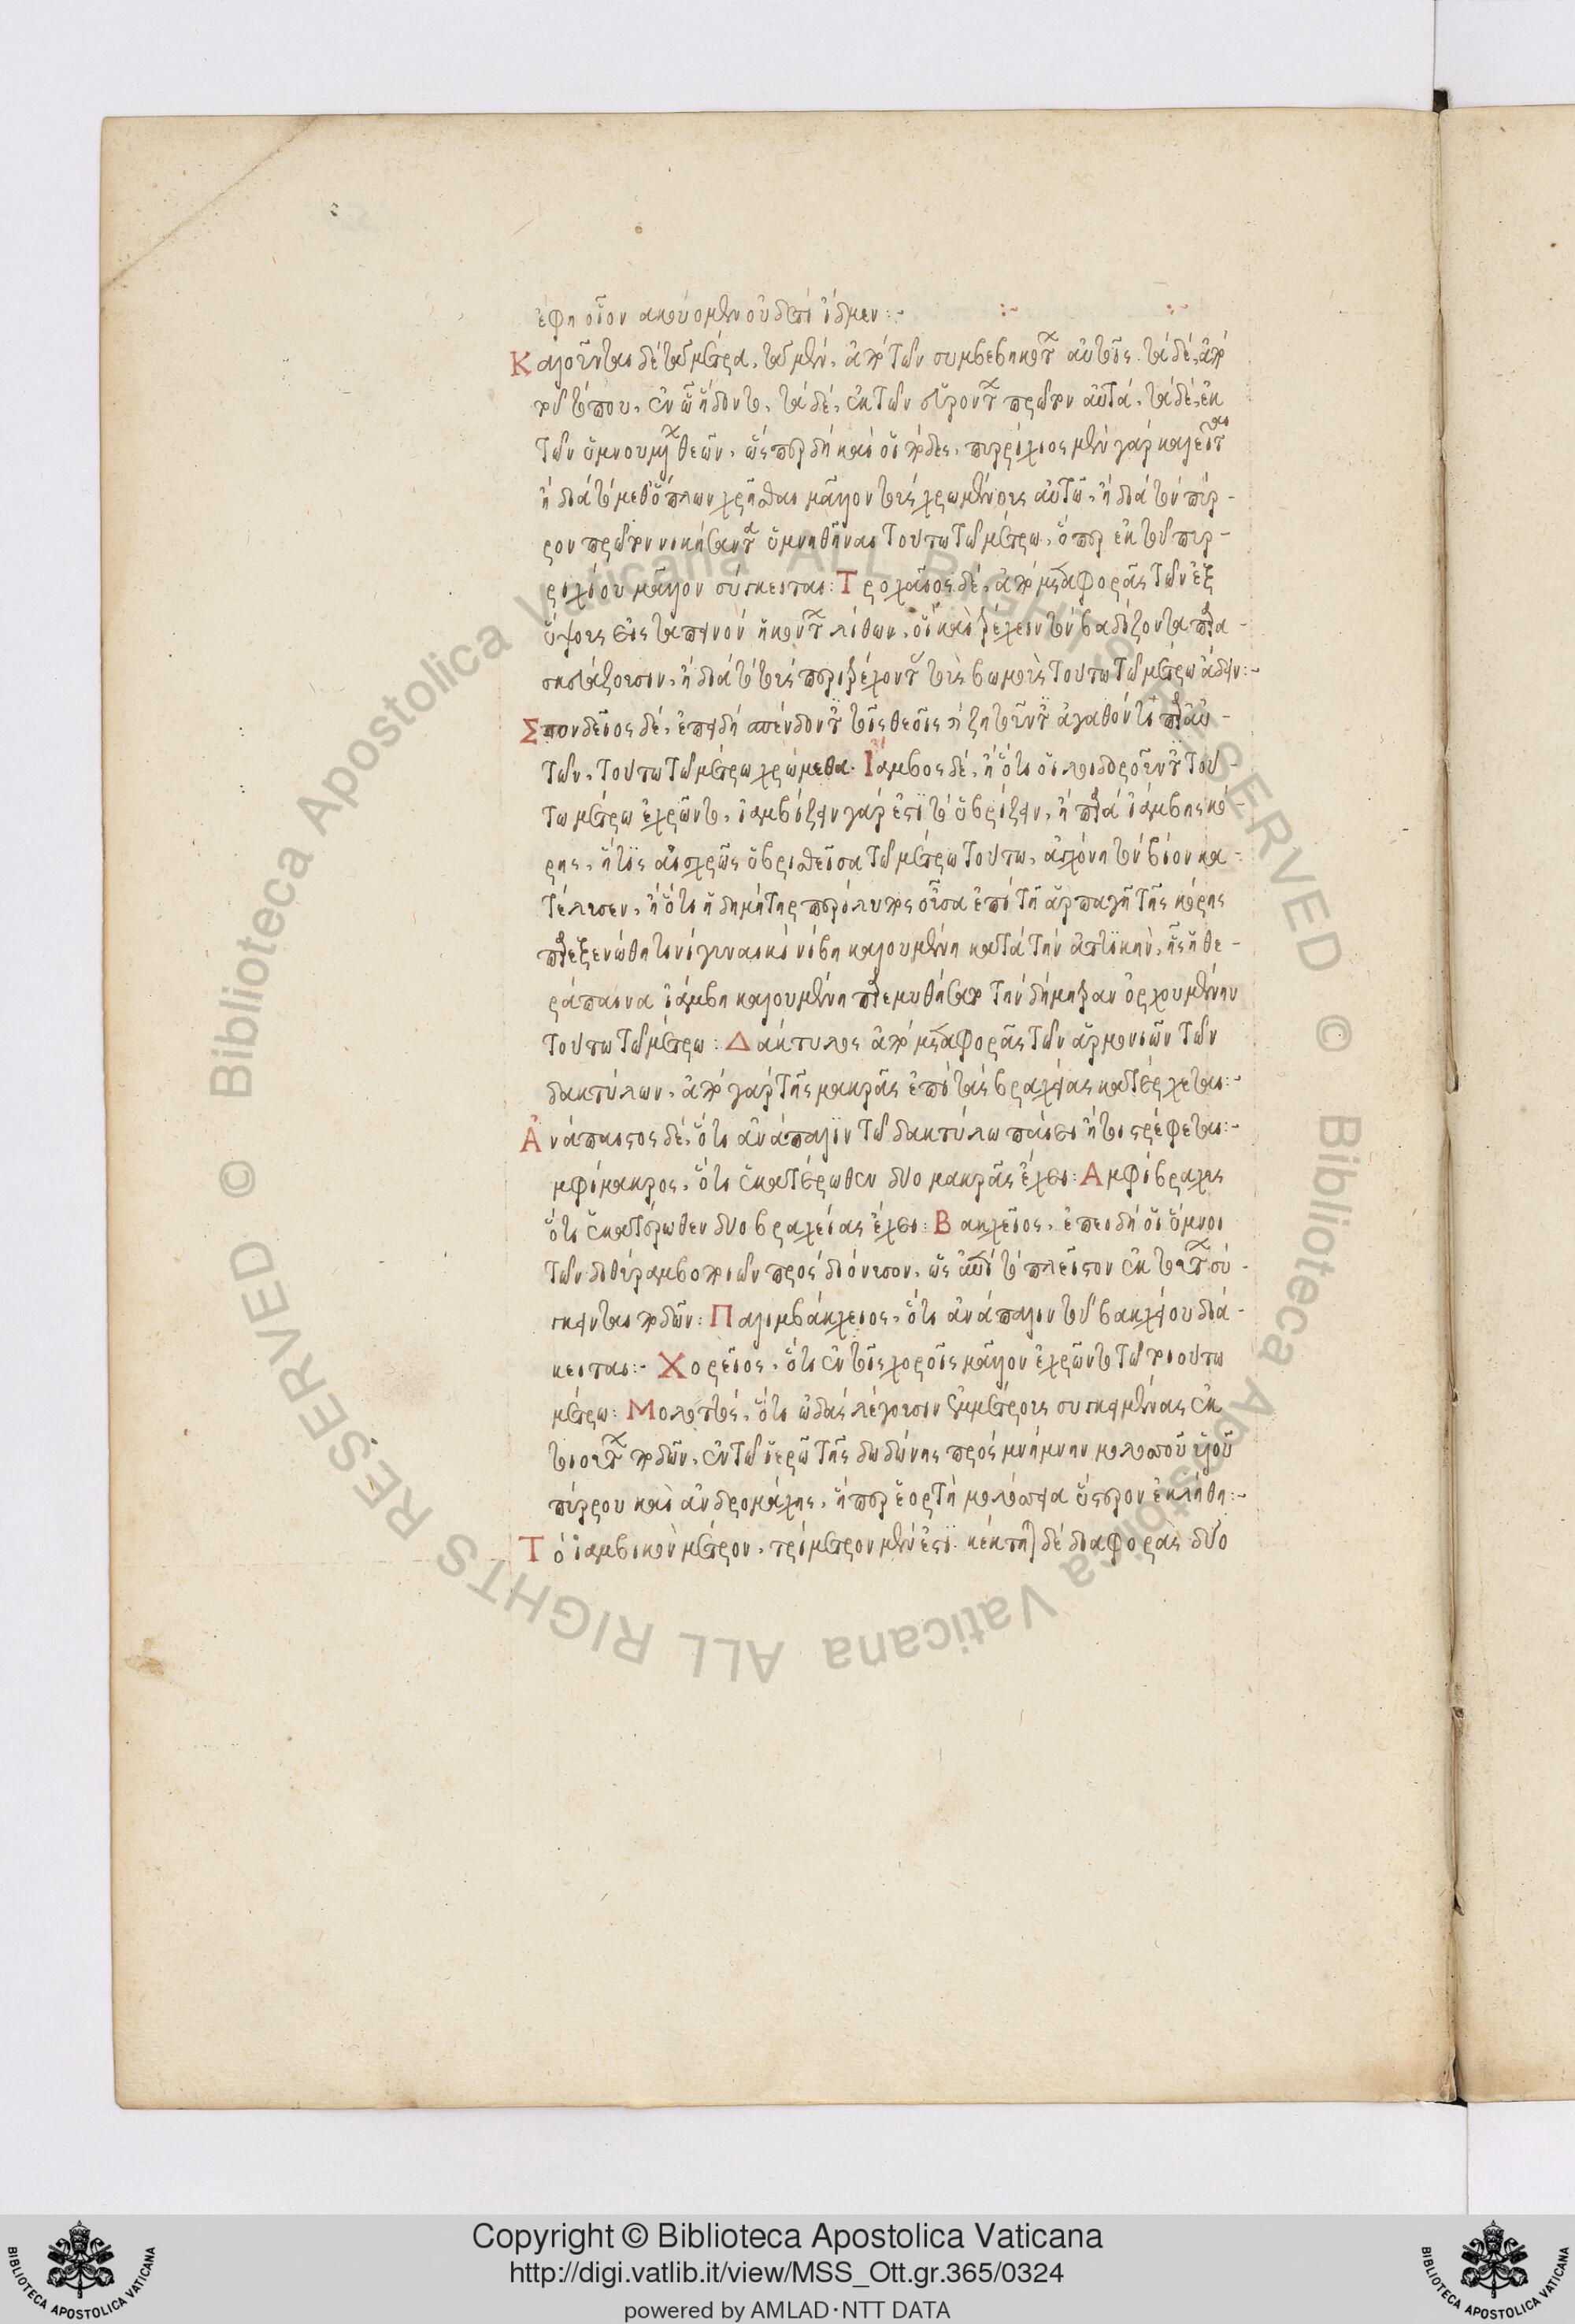 ἔφη οἷον ακούομεν οὐδέ τι ἴδμεν:~
Καλοῦνται δὲ τὰ μέτρα, τὰ μὲν, ἀπὸ τῶν συμβεβηκότων αὐτοῖς. τὰ δὲ, ἀπὸ
τοῦ τόπου, ἐν ᾧ ᾔδοντο, τὰ δὲ, ἐκ τῶν εὑρόντων πρῶτον αὐτά, τὰ δὲ, ἐκ
τῶν ὑμνουμένων θεῶν, ὥσπερ δὴ καὶ οἱ πόδες, πυρρίχιος μὲν γὰρ καλεῖται
ἢ διὰ τὸ μεθ' ὅπλων χρῆσθαι μᾶλλον τοὺς χρωμένους αὐτῷ, ἢ διὰ τὸν πύρ-
ρον πρῶτον νικήσαντα ὑμνηθῆναι τούτω τῶ μέτρω, ὅπερ ἐκ τοῦ πυρ-
ριχίου μᾶλλον σύγκειται: Τροχαῖος δὲ, ἀπὸ μεταφορᾶς τῶν ἐξ
ὕψους εἰς ταπεινὸν ἡκόντων λίθων, οἳ καὶ τρέχειν τὸν βαδίζοντα παρα-
σκευάζουσιν, ἢ διὰ τὸ τοὺς περιτρέχοντας τοὺς βωμοὺς τούτω τῶ μέτρω ἄδειν:~
Σπονδεῖος δὲ, ἐπειδὴ σπένδοντες τοῖς θεοῖς ἢ ζητοῦντες ἀγαθόν τι παρ' αὐ-
τῶν, τούτω τῶ μέτρω χρώμεθα. Ἴαμβος δὲ, ἢ ὅτι οἱ λοιδοροῦντες τού-
τω μέτρω ἐχρῶντο, ἰαμβίζειν γάρ ἐστι τὸ ὑβρίζειν, ἢ παρὰ ἰάμβης κό-
ρης, ἥτις αἰσχρῶς ὑβρισθεῖσα τῶ μέτρω τούτω, ἀγχόνη τὸν βίον κα-
τέλυσεν, ἢ ὅτι ἡ δημήτηρ περίλυπος οὖσα ἐπὶ τῇ ἁρπαγῇ τῆς κόρης
παρεξενώθη τινὶ γυναικὶ νίβη καλουμένη κατὰ τὴν ἀττικὴν, ἧς ἡ θε-
ράπαινα ἰάμβη καλουμένη παρεμυθήσατο τὴν δήμητραν ὀρχουμένην
τούτω τῶ μέτρω: Δάκτυλος ἀπὸ μεταφορᾶς τῶν ἁρμονιῶν τῶν
δακτύλων, ἀπὸ γὰρ τῆς μακρᾶς ἐπὶ τὰς βραχείας κατέρχεται:~
Ἀνάπαιστος δὲ, ὅτι ἀνάπαλιν τῶ δακτύλω παίει ἤτοι στρέφεται:~
μφίμακρος, ὅτι ἑκατέρωθεν δύο μακρὰς ἔχει: Αμφίβραχυς
ὅτι ἑκατέρωθεν δύο βραχείας ἔχει: Βακχεῖος, ἐπειδὴ οἱ ὕμνοι
τῶν διθυραμβοποιῶν πρὸς διόνυσον, ὡς ἐπὶ τὸ πλεῖστον ἐκ τούτων σύ-
γκεινται ποδῶν: Παλιμβάκχειος, ὅτι ἀνάπαλιν τοῦ βακχείου διά-
κειται:~ Χορεῖος, ὅτι ἐν τοῖς χοροῖς μᾶλλον ἐχρῶντο τῶ τοιούτω
μέτρω: Μολοττός, ὅτι ὠδὰς λέγουσιν ἐμμέτρους συγκειμένας ἐκ
τοιούτων ποδῶν, ἐν τῶ ἱερῶ τῆς δωδώνης πρὸς μνήμην μολοττοῦ υἱοῦ
πύρρου καὶ ἀνδρομάχης, ἥπερ ἑορτὴ μολόττεια ὕστερον ἐκλήθη:~
Τὸ ἰαμβικὸν μέτρον, τρίμετρον μέν ἐστι. κέκτηται δὲ διαφορὰς δύο
Copyright © Biblioteca Apostolica Vaticana
http://digi.vatlib.it/view/MSS_Ott.gr.365/0324
powered by AMLAD·NTT DATA
BIBLIOTECA APOSTOLICA VATICANA
BIBLIOTECA APOSTOLICA VATICANA
© Biblioteca Apostolica Vaticana ALL RIGHTS RESERVED
© Biblioteca Apostolica Vaticana ALL RIGHTS RESERVED